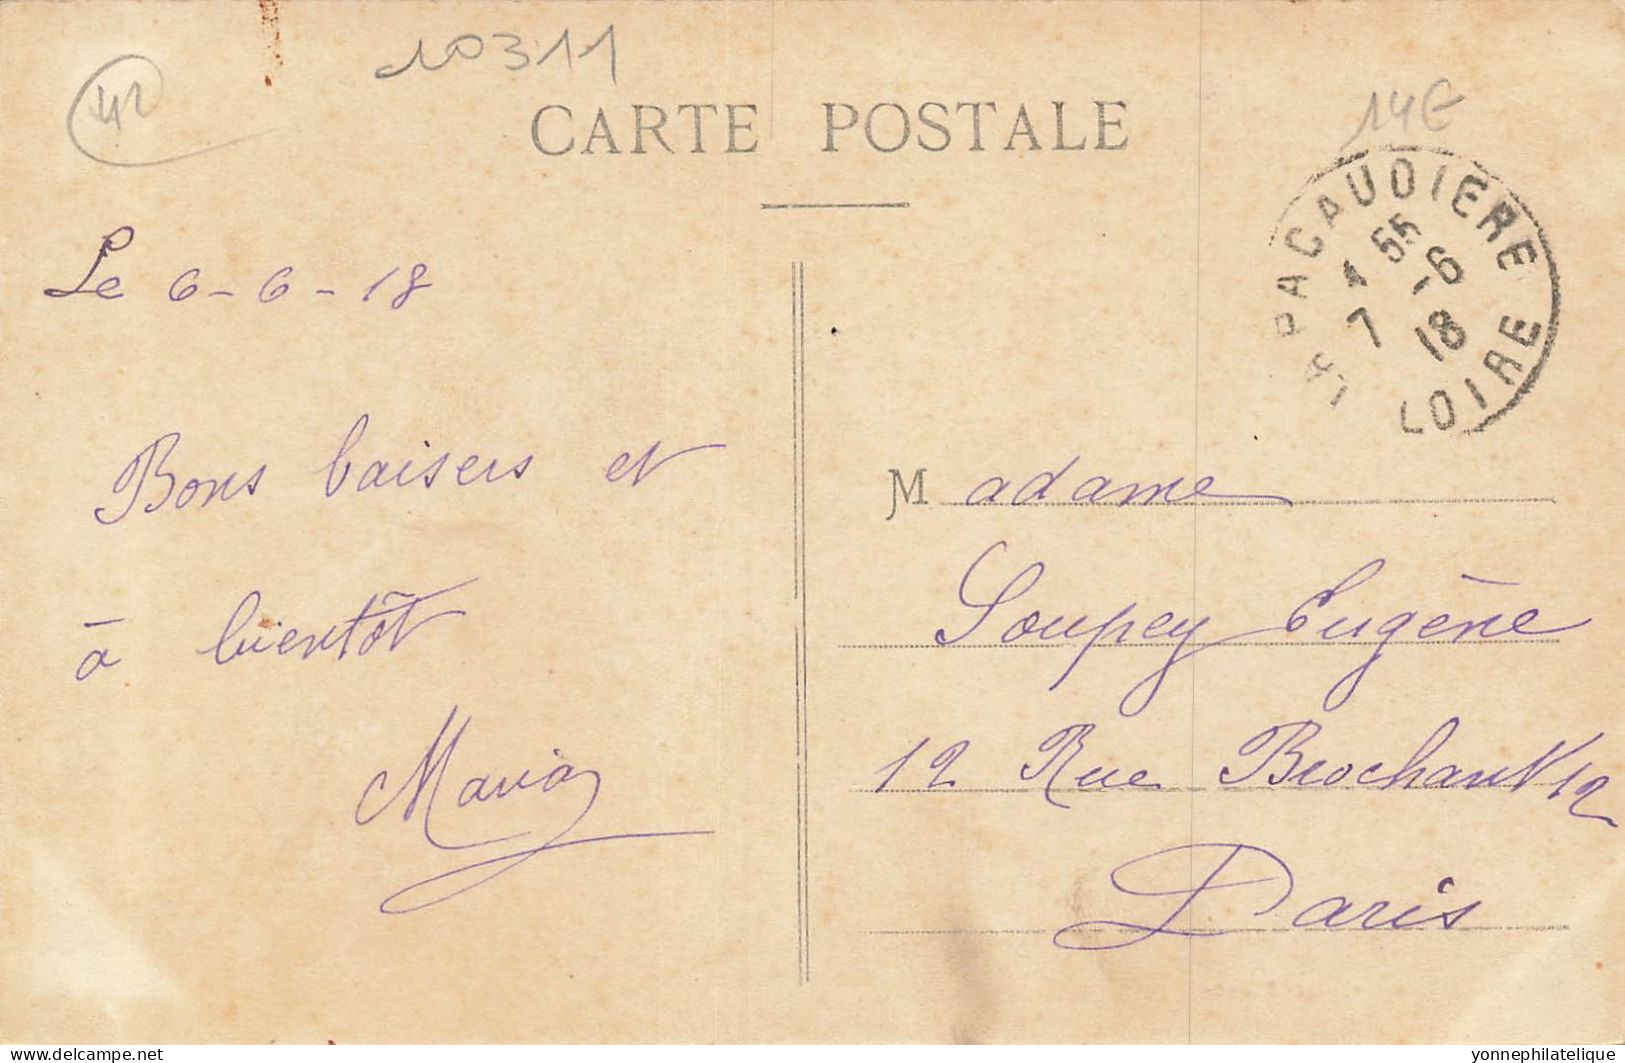 42
10311
14€
CARTE POSTALE
LA PACAUDIÈRE
55
7 -6
18
LOIRE
Le 6-6-18
Bons baisers et
à bientôt
Maria
Madame
Soupey Eugène
12 Rue Brochant 12
Paris
www.delcampe.net
yonnephilatelie